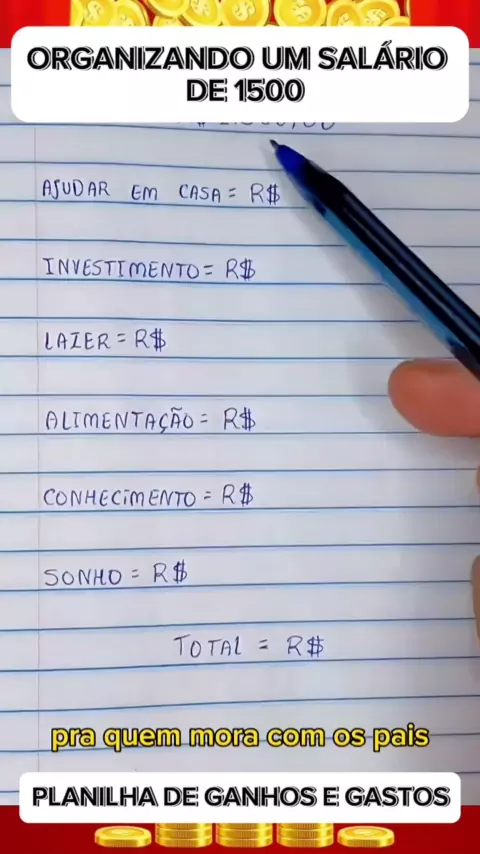 ORGANIZANDO UM SALÁRIO
DE 1500
AJUDAR EM CASA = R$
INVESTIMENTO = R$
LAZER = R$
ALIMENTAÇÃO = R$
CONHECIMENTO = R$
SONHO = R$
TOTAL = R$
pra quem mora com os pais
PLANILHA DE GANHOS E GASTOS